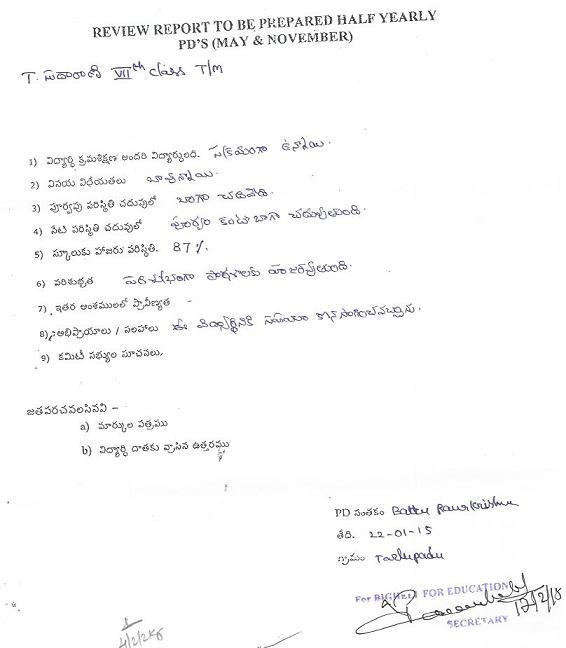 REVIEW REPORT TO BE PREPARED HALF YEARLY
PD'S (MAY & NOVEMBER)
T. VIIth class T/M
1) విద్యార్థి క్రమశిక్షణ అందరి విద్యార్థులది. సక్రమంగా ఉన్నాయి.
2) వినయ విధేయతలు బావున్నాయి.
3) పూర్వపు పరిస్థితి చదువులో బాగా చదివేది.
4) నేటి పరిస్థితి చదువులో పూర్వం కంటే బాగా చదువుతుంది.
5) స్కూలుకు హాజరు పరిస్థితి. 87%.
6) పరిశుభ్రత పరిశుభ్రంగా పాఠశాలకు హాజరవుతుంది.
7) ఇతర అంశములలో ప్రావీణ్యత -
8) అభిప్రాయాలు / సలహాలు ఈ విద్యార్థినికి సహాయం కొనసాగించవచ్చును.
9) కమిటీ సభ్యుల సూచనలు.
జతపరచవలసినవి –
a) మార్కుల పత్రము
b) విద్యార్థి దాతకు వ్రాసిన ఉత్తరము
PD సంతకం Battu Ramakrishna
తేది. 22-01-15
గ్రామం Tarlupadu
FOR EDUCATION
12/2/15
SECRETARY